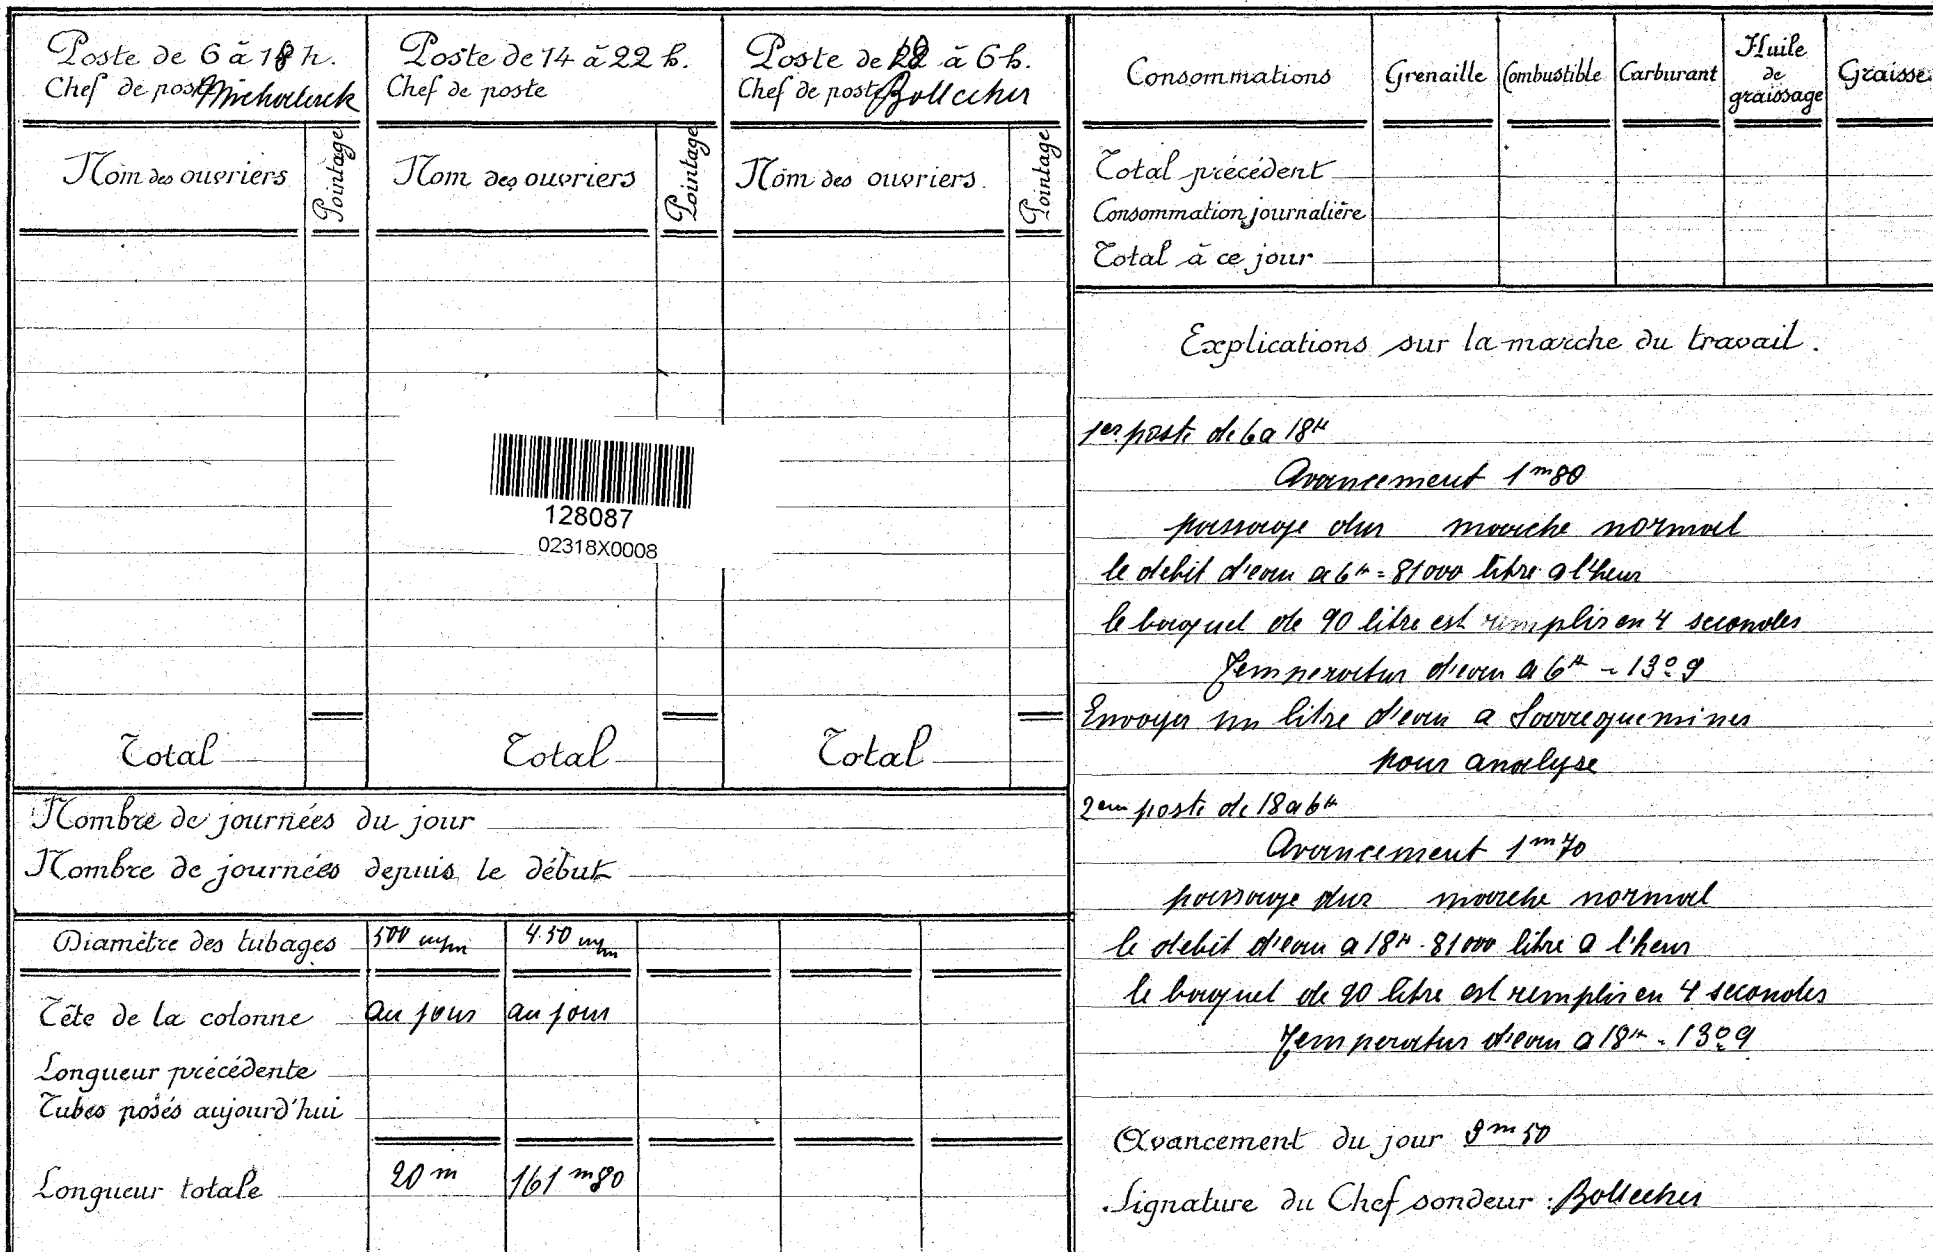 Poste de 6 à 18 h.
Chef de poste
Nom des ouvriers
Pointage
Total
Poste de 14 à 22 h.
Chef de poste
Nom des ouvriers
Pointage
Total
Poste de à 6 h.
Chef de poste Bollecher
Nom des ouvriers.
Pointage
Total
128087
02318X0008
Nombre de journées du jour
Nombre de journées depuis le début
Diamètre des tubages 500 m/m 450 m/m
Tête de la colonne au jour au jour
Longueur précédente
Tubes posés aujourd'hui
Longueur totale 20 m 161 m 80
Consommations Grenaille Combustible Carburant Huile de graissage Graisse
Total précédent
Consommation journalière
Total à ce jour
Explications sur la marche du travail.
1er poste de 6 a 18 H
Avancement 1 m 80
passage dur marche normal
le debit d'eau a 6 H = 81000 litre a l'heur
le baquet de 90 litre est remplir en 4 secondes
Temperatur d'eau a 6 H - 13° 9
Envoyer un litre d'eau a Sarreguemines
pour analyse
2em poste de 18 a 6 H
Avancement 1 m 70
passage dur marche normal
le debit d'eau a 18 H - 81000 litre a l'heur
le baquet de 90 litre est remplir en 4 secondes
Temperatur d'eau a 18 H - 13° 9
Avancement du jour 3 m 50
Signature du Chef sondeur : Bollecher